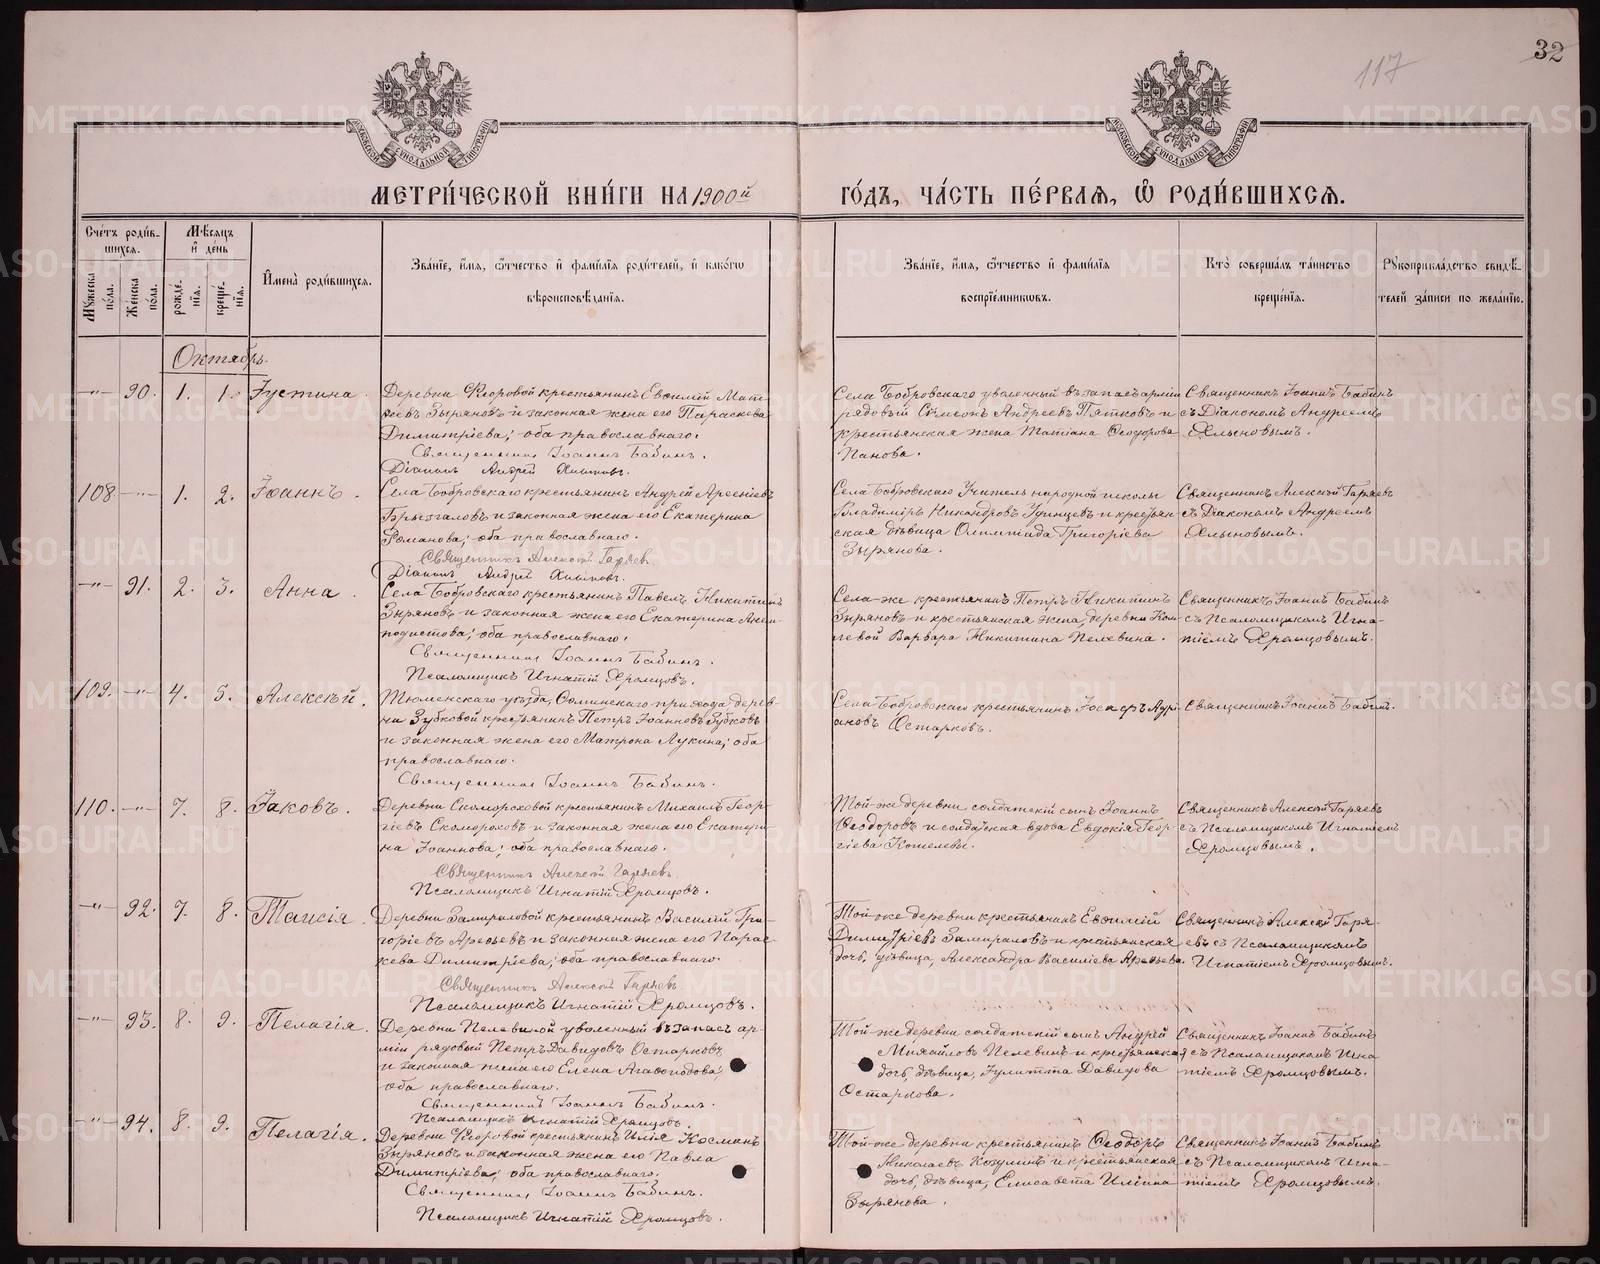 32
117
МОСКОВСКОЙ СУНОДАЛЬНОЙ ТИПОГРАФІИ
МОСКОВСКОЙ СУНОДАЛЬНОЙ ТИПОГРАФІИ
МЕТРИ́ЧЕСКОЙ КНИ́ГИ НА 1900й
ГО́ДЪ, ЧА́СТЬ ПЕ́РВАѦ, Ѡ҆ РОДИ́ВШИХСѦ.
Сче́тъ роди́в-
шихсѧ.
Мꙋ́жеска по́ла.
Же́нска по́ла.
Мѣ́сѧцъ
и҆ де́нь
рожде́-
нїѧ.
креще́-
нїѧ.
И҆мена̀ роди́вшихсѧ.
Зва́нїе, и҆́мѧ, ѻ҆́тчество и҆ фами́лїѧ роди́телей, и҆ како́гѡ
вѣроисповѣ́данїѧ.
Зва́нїе, и҆́мѧ, ѻ҆́тчество и҆ фами́лїѧ
воспрїе́мниковъ.
Кто̀ соверша́лъ та́инство
креще́нїѧ.
Рꙋкоприкла́дство свидѣ́-
телей за́писи по жела́нїю.
Октябрь.
-"- 90. 1. 1. Іустина.
Деревни Ѳ҆коровой крестьянинъ Евѳимій Мат-
ѳіевъ Зыряновъ и законная жена его Параскева
Димитріева; оба православнаго.
Священникъ Іоаннъ Бабинъ.
Діаконъ Андрей Хлыновъ.
Села Бобровскаго уволенный въ запасъ арміи
рядовый Сѵмеонъ Андреевъ Пятковъ и
крестьянская жена Татіана Ѳеодорова
Панова.
Священникъ Іоаннъ Бабинъ
съ Діакономъ Андреемъ
Хлыновымъ.
108 -"- 1. 2. Іоаннъ.
Села Бобровскаго крестьянинъ Андрей Арсеніевъ
Брызгаловъ и законная жена его Екатерина
Романова; оба православнаго.
Священникъ Алексій Гаряев
Діаконъ Андрей Хлыновъ.
Села Бобровскаго Учитель народной школы
Владиміръ Никандровъ Удинцевъ и крестьян
ская дѣвица Олимпіада Григоріева
Зырянова.
Священникъ Алексій Гаряевъ
съ Діакономъ Андреемъ
Хлыновымъ.
-"- 91. 2. 3. Анна.
Села Бобровскаго крестьянинъ Павелъ Никитинъ
Зыряновъ и законная жена его Екатерина Анем-
подистова; оба православнаго.
Священникъ Іоаннъ Бабинъ.
Псаломщикъ Игнатій Храмцовъ.
Села-же крестьянинъ Петръ Никитинъ
Зыряновъ и крестьянская жена, деревни
Варвара Никитина Пелевина.
Священникъ Іоаннъ Бабинъ
съ Псаломщикомъ Игна-
тіемъ Храмцовымъ.
109. -"- 4. 5. Алексѣй.
Тюменскаго уѣзда, Ѳоминскаго прихода дерев-
ни Зубковой крестьянинъ Петръ Іоанновъ Зубковъ
и законная жена его Матрона Лукина; оба
православнаго.
Священникъ Іоаннъ Бабинъ.
Села Бобровскаго крестьянинъ Іосифъ Адрі-
ановъ Остарковъ.
Священникъ Іоаннъ Бабинъ.
110. -"- 7. 8. Іаковъ.
Деревни Скомороховой крестьянинъ Михаилъ Геор-
гіевъ Скомороховъ и законная жена его Екатери-
на Іоаннова; оба православнаго.
Священникъ Алексій Гаряевъ
Псаломщикъ Игнатій Храмцовъ.
Той-же деревни солдатскій сынъ Іоаннъ
Ѳеодоровъ и солдатская вдова Евдокія Геор-
гіева Кошелевы.
Священникъ Алексій Гаряевъ
съ Псаломщикомъ Игнатіемъ
Храмцовымъ.
-"- 92. 7. 8. Таисія.
Деревни Замираловой крестьянинъ Василій Гри-
горіевъ Арефьевъ и законная жена его Парас-
кева Димитріева; оба православнаго.
Священникъ Алексій Гаряевъ
Псаломщикъ Игнатій Храмцовъ.
Той-же деревни крестьянинъ Евѳимій
Димитріевъ Замираловъ и крестьянская
дочь, дѣвица, Александра Василіева Арефьева.
Священникъ Алексій Гаря-
евъ съ Псаломщикомъ
Игнатіемъ Храмцовымъ.
-"- 93. 8. 9. Пелагія.
Деревни Пелевиной уволенный въ запасъ ар-
міи рядовый Петръ Давидовъ Остарковъ
и законная жена его Елена Агаѳоподова;
оба православнаго.
Священникъ Іоаннъ Бабинъ.
Псаломщикъ Игнатій Храмцовъ.
Той-же деревни солдатскій сынъ Андрей
Михайловъ Пелевинъ и крестьянская
дочь, дѣвица, Іулитта Давидова
Остаркова.
Священникъ Іоаннъ Бабинъ
съ Псаломщикомъ Игна
тіемъ Храмцовымъ.
-"- 94. 8. 9. Пелагія.
Деревни крестьянинъ Илія Косминъ
Зыряновъ и законная жена его Павла
Димитріева; оба православнаго.
Священникъ Іоаннъ Бабинъ.
Псаломщикъ Игнатій Храмцовъ.
Той-же деревни крестьянинъ Ѳеодоръ
Николаевъ и крестьянская
дочь, дѣвица, Елисавета Иліина
Зырянова.
Священникъ Іоаннъ Бабинъ
съ Псаломщикомъ Игна-
тіемъ Храмцовымъ.
METRIKI.GASO-URAL.RU